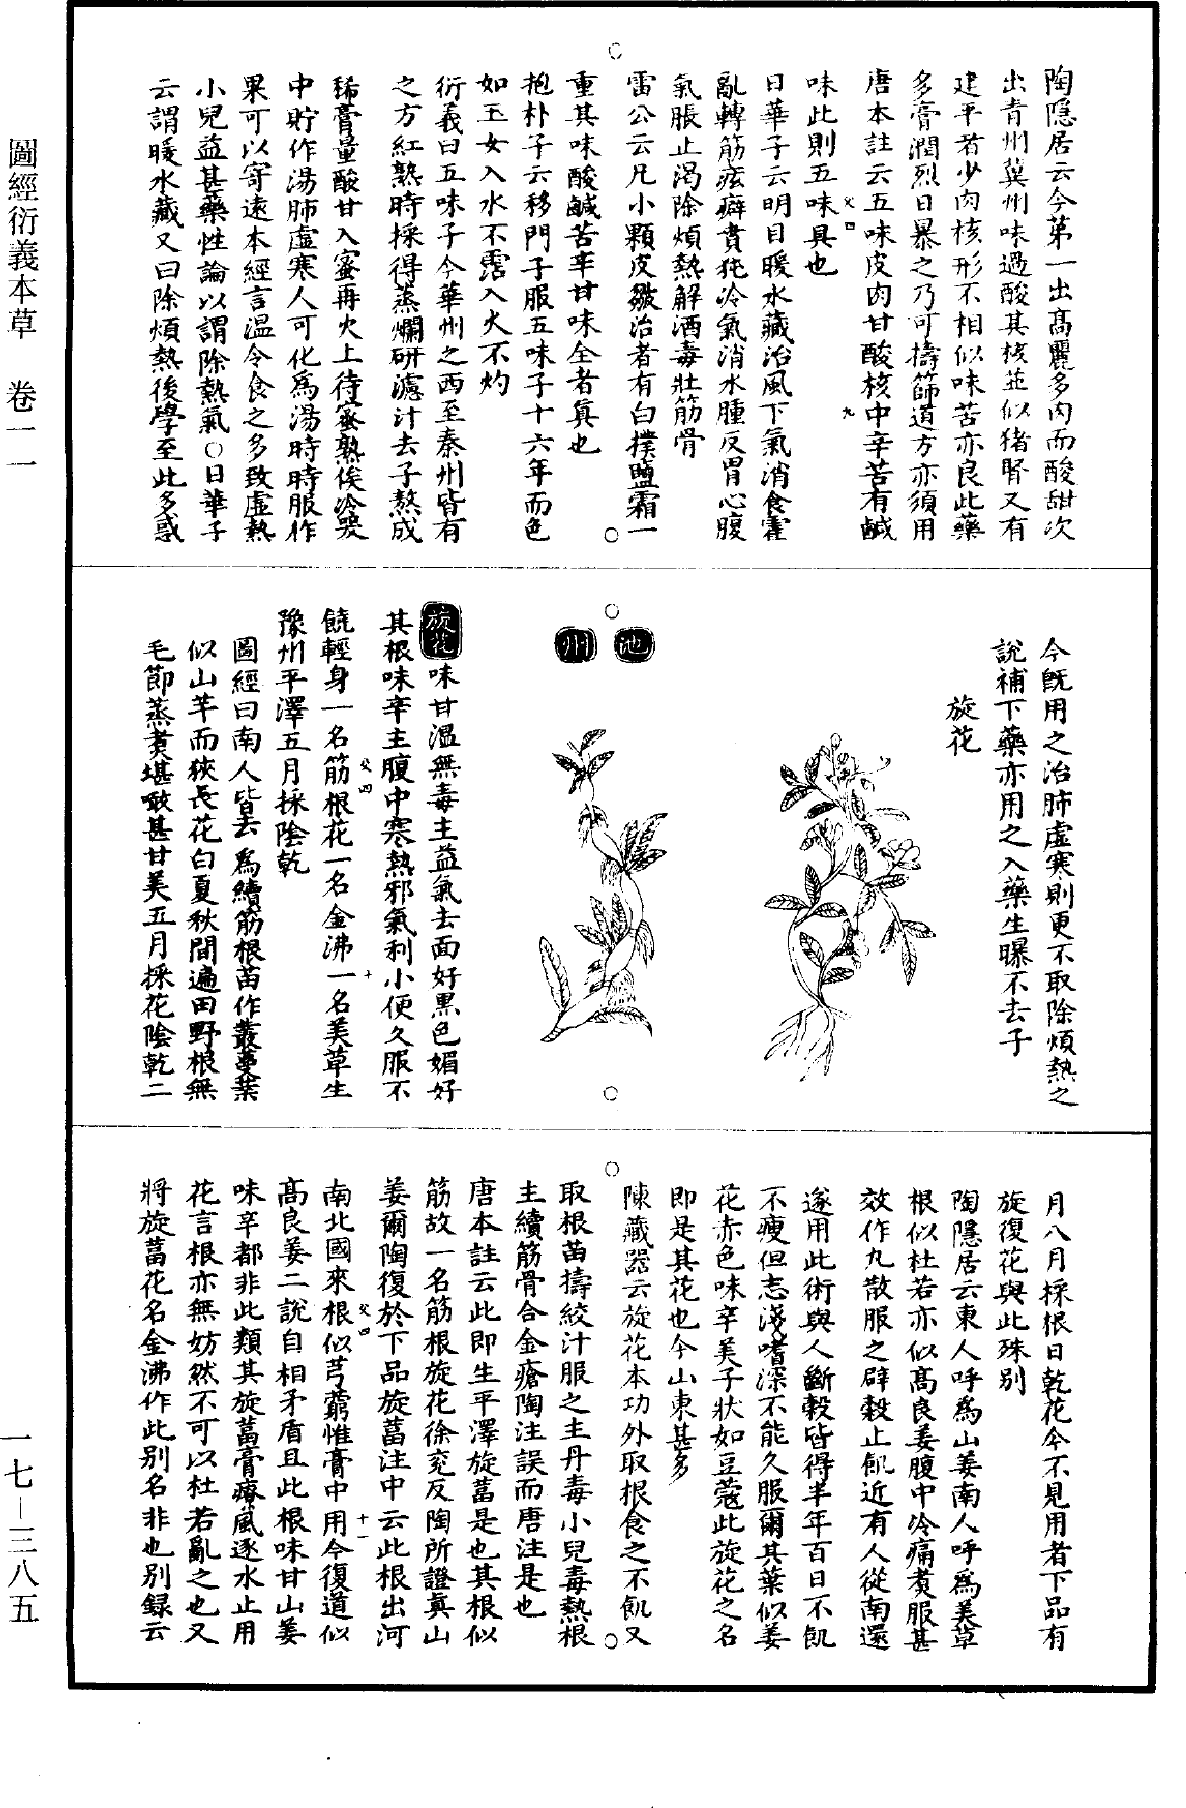 陶隱居云今第一出高麗多肉而酸甜次
出青州冀州味過酸其核並似猪腎又有
建平者少肉核形不相似味苦亦良此藥
多膏潤烈日暴之乃可擣篩道方亦須用
唐本註云五味皮肉甘酸核中辛苦有鹹
味此則五味具也
日華子云明目暖水藏治風下氣消食霍
亂轉筋痃癖賁㹠冷氣消水腫反胃心腹
氣脹止渴除煩熱解酒毒壯筋骨
雷公云凡小顆皮皺治者有白撲鹽霜一
重其味酸鹹苦辛甘味全者真也
抱朴子云移門子服五味子十六年而色
如玉女入水不霑入火不灼
衍義曰五味子今華州之西至秦州皆有
之方紅熟時採得蒸爛研濾汁去子熬成
稀膏量酸甘入蜜再火上待蜜熟俟冷器
中貯作湯肺虛寒人可化為湯時時服作
果可以寄遠本經言溫今食之多致虛熱
小兒益甚藥性論以謂除熱氣○日華子
云謂暖水藏又曰除煩熱後學至此多惑
今既用之治肺虛寒則更不取除煩熱之
說補下藥亦用之入藥生曝不去子
旋花
池
州
旋花 味甘溫無毒主益氣去面䵟黑色媚好
其根味辛主腹中寒熱邪氣利小便久服不
饒輕身一名筋根花一名金沸一名美草生
豫州平澤五月採陰乾
圖經曰南人皆云為續筋根苗作叢蔓葉
似山芋而狹長花白夏秋間遍田野根無
毛節蒸煑堪啖甚甘美五月採花陰乾二
月八月採根日乾花今不見用者下品有
旋復花與此殊別
陶隱居云東人呼為山姜南人呼為美草
根似杜若亦似高良姜腹中冷痛煑服甚
效作丸散服之辟穀止飢近有人從南還
遂用此術與人斷穀皆得半年百日不飢
不瘦但志淺嗜深不能久服爾其葉似姜
花赤色味辛美子狀如豆蔻此旋花之名
即是其花也今山東甚多
陳藏器云旋花本功外取根食之不飢又
取根苗擣絞汁服之主丹毒小兒毒熱根
主續筋骨合金瘡陶注誤而唐注是也
唐本註云此即生平澤旋葍是也其根似
筋故一名筋根旋花徐兖反陶所證真山
姜爾陶復於下品旋葍注中云此根出河
南北國來根似芎藭惟膏中用今復道似
高良姜二說自相矛盾且此根味甘山姜
味辛都非此類其旋葍膏療風逐水止用
花言根亦無妨然不可以杜若亂之也又
將旋葍花名金沸作此別名非也別錄云
圖經衍義本草　卷一一
一七—三八五